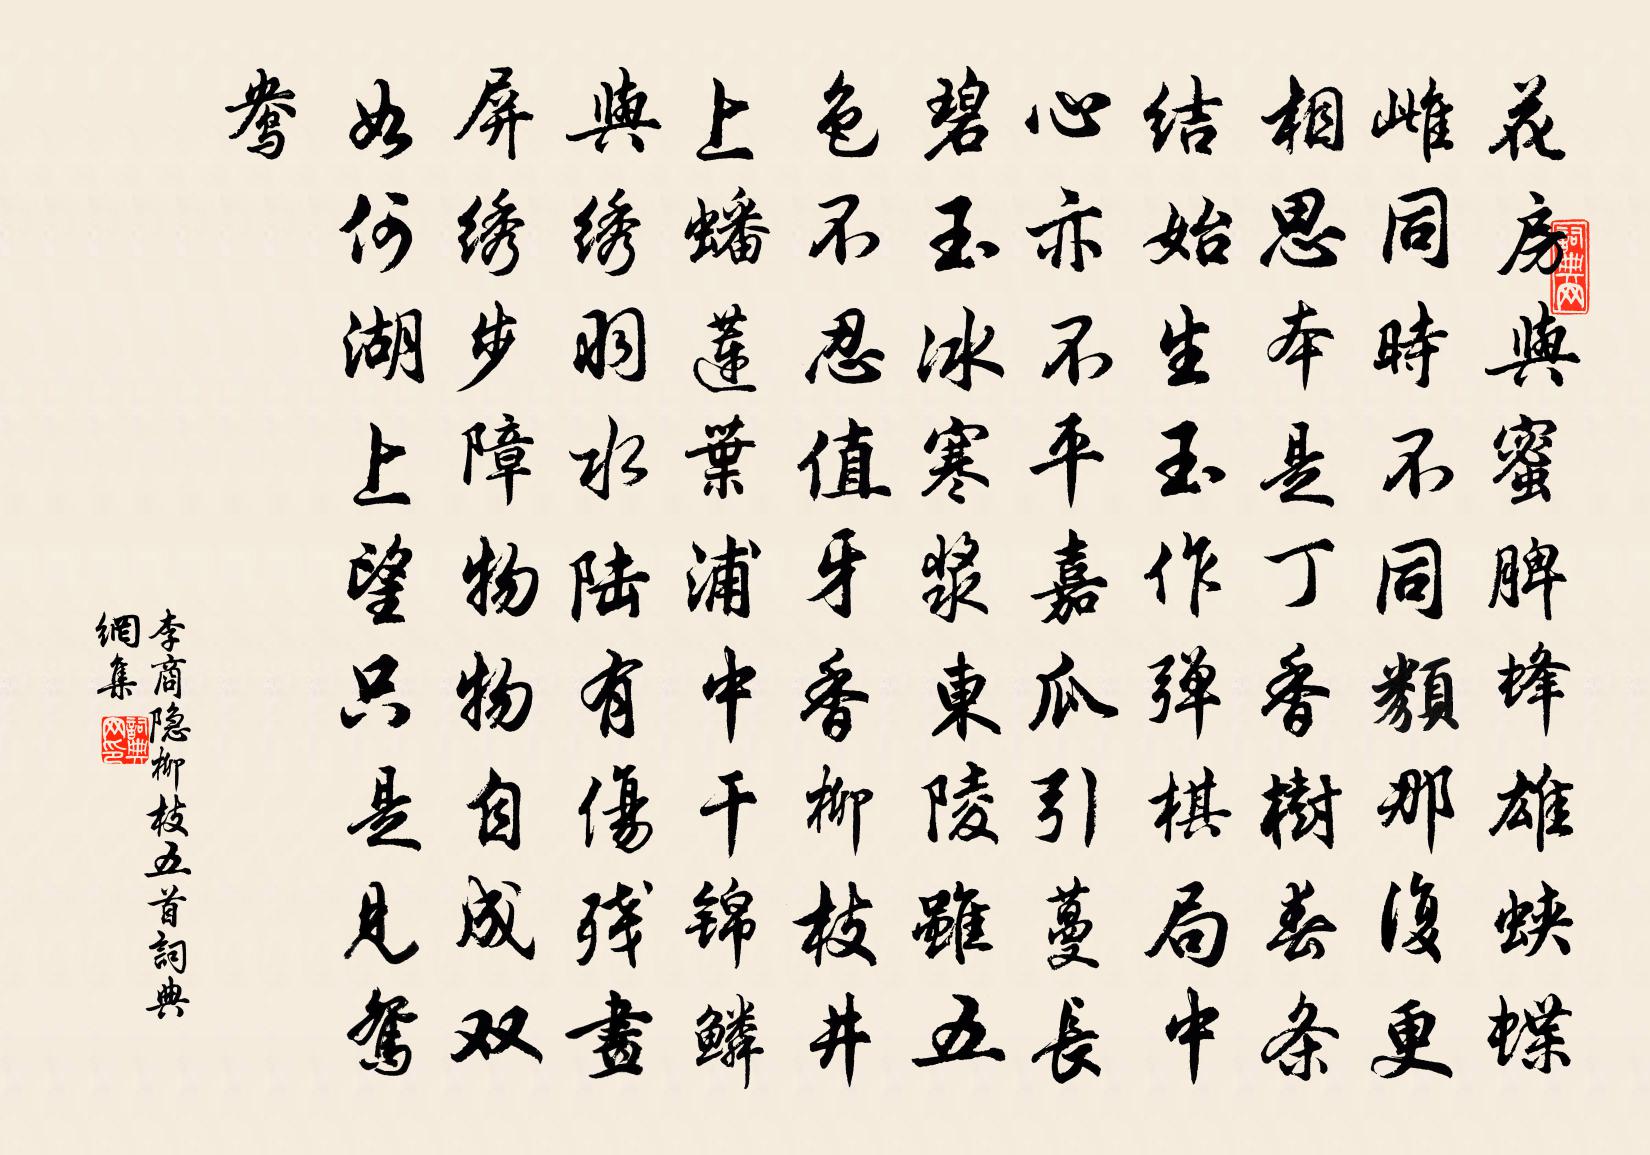 花房與蜜脾蜂雄蛱蝶
雌同時不同類那復更
相思本是丁香樹春条
结始生玉作弹棋局中
心亦不平嘉瓜引蔓長
碧玉冰寒漿東陵雖五
色不忍值牙香柳枝井
上蟠蓮葉浦中干锦鳞
與绣羽水陆有傷残畫
屏绣步障物物自成双
如何湖上望只是見鸳
鸯
李商隐柳枝五首詞典
網集
詞典网
詞典网印